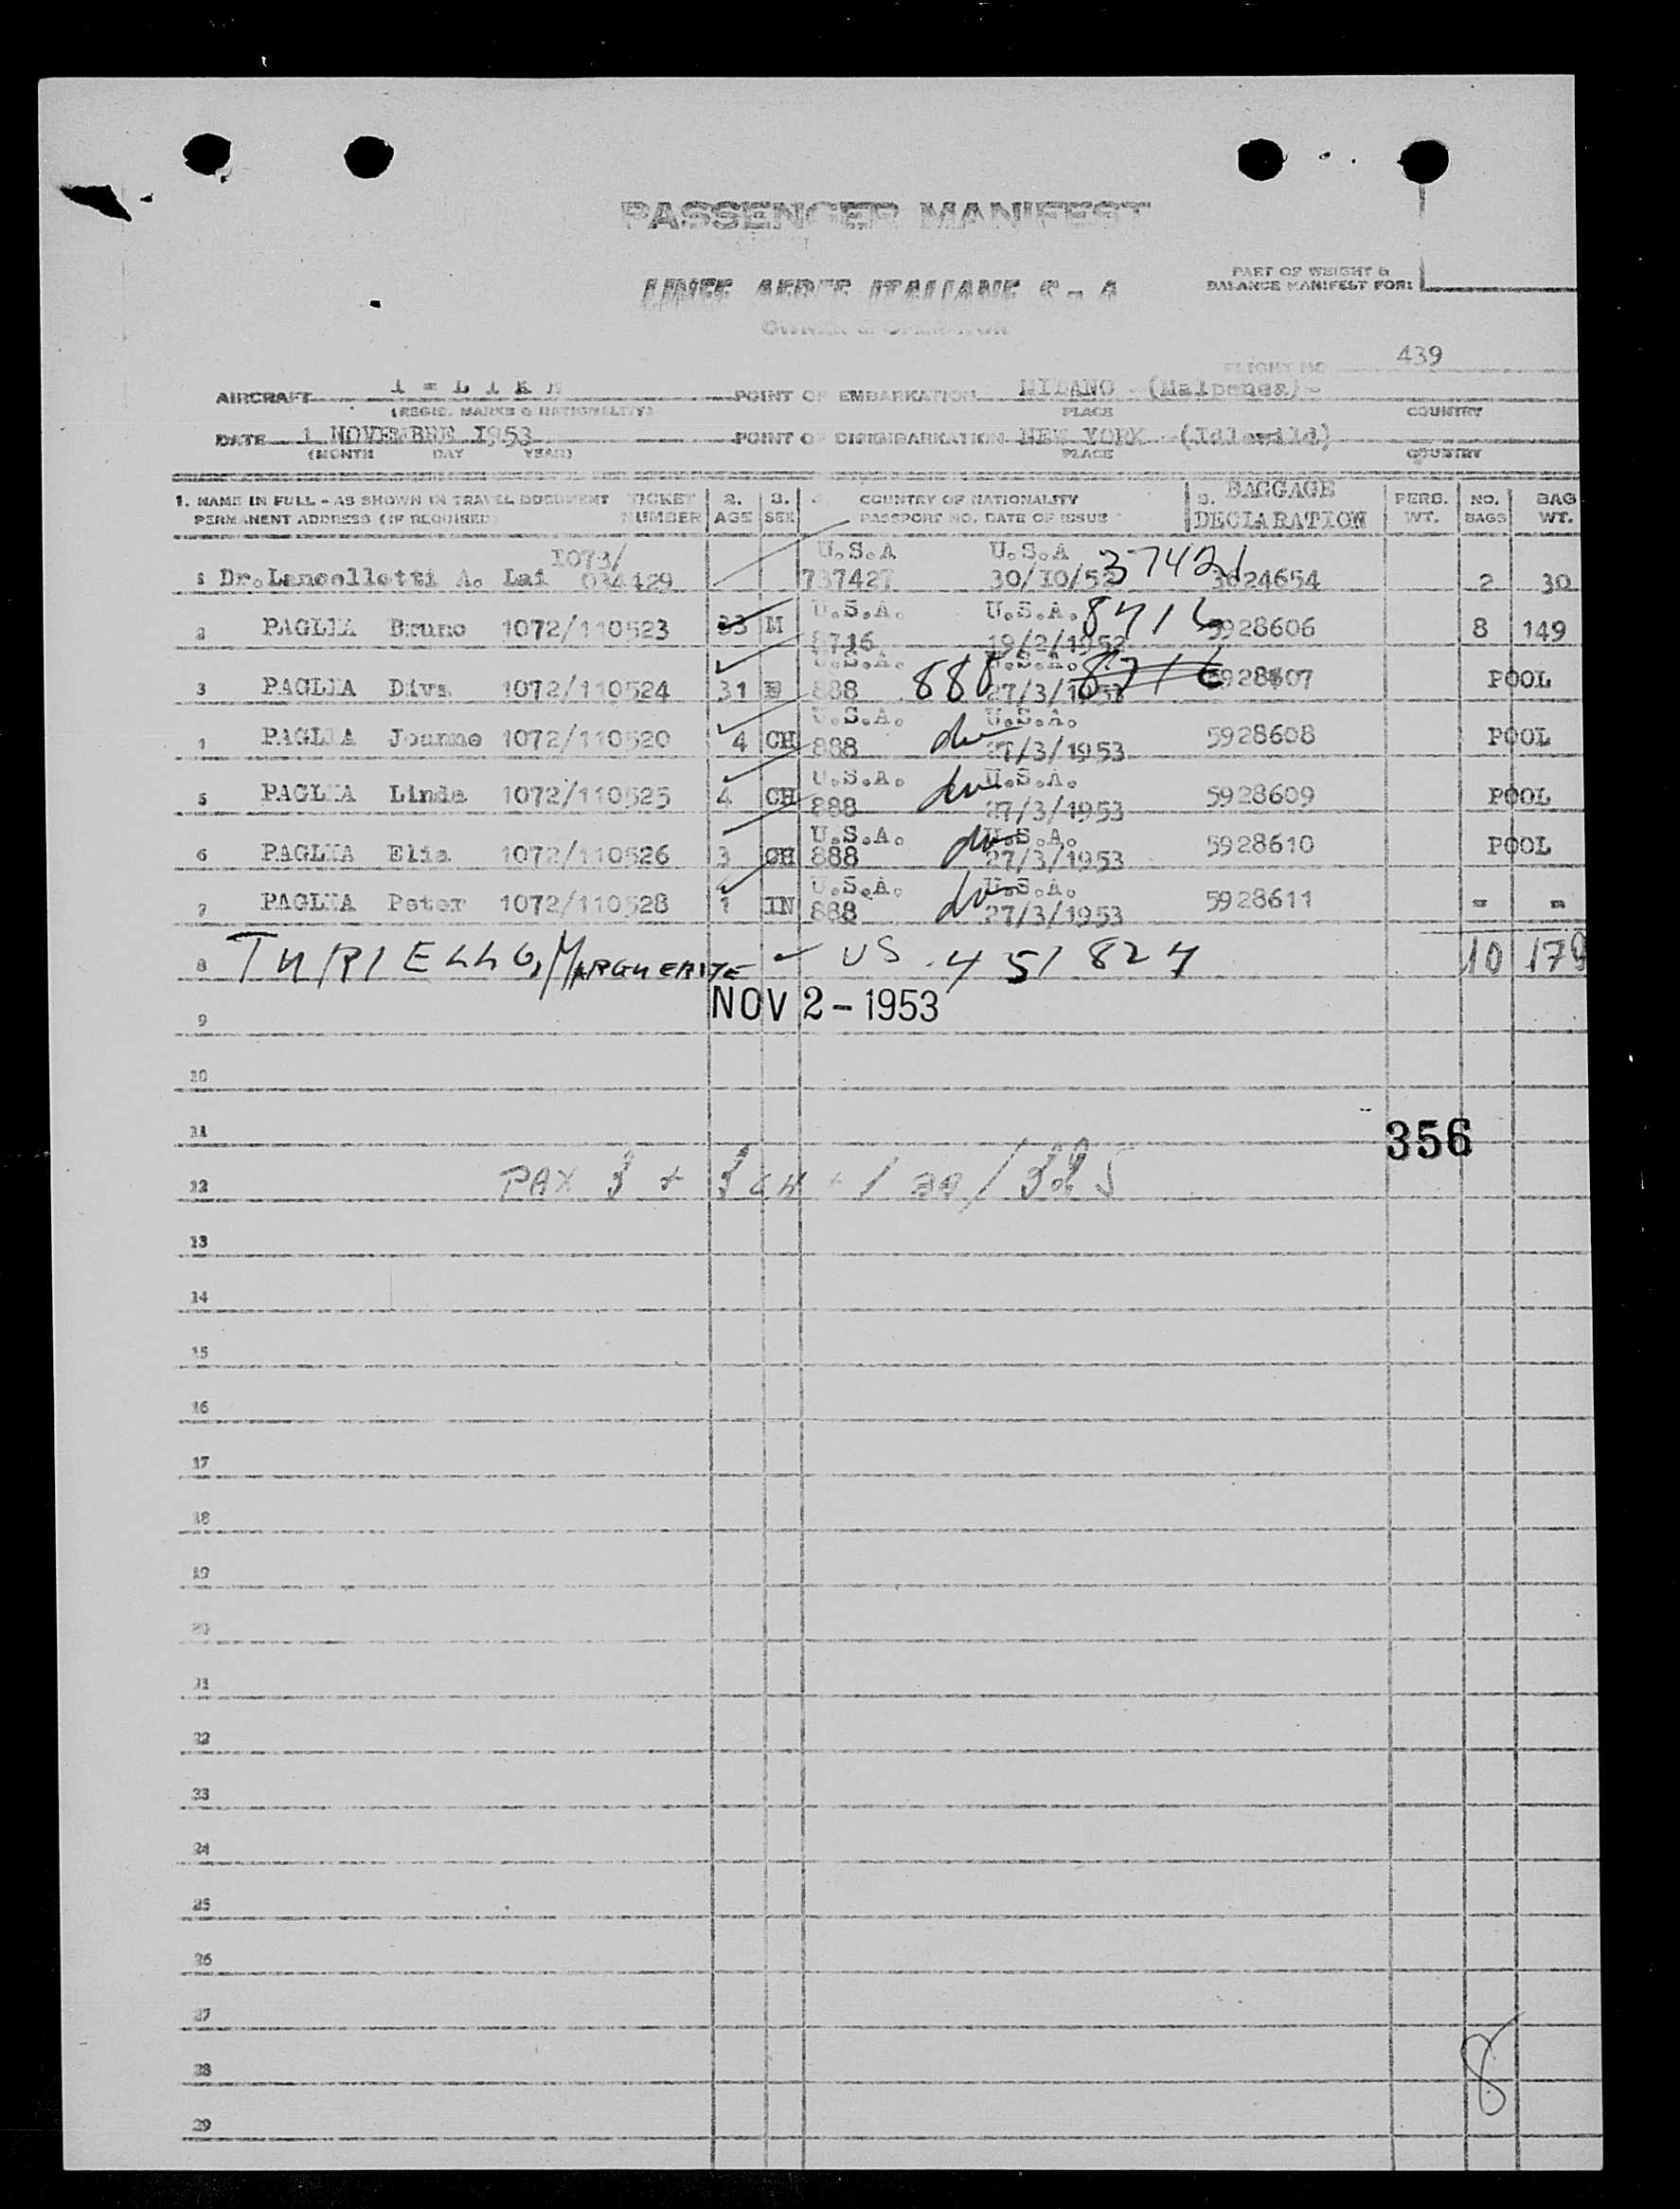 PASSENGER MANIFEST
LINEE AEREE ITALIANE S-A
OWNER & OPERATOR
PART OF WEIGHT &
BALANCE MANIFEST FOR:
FLIGHT NO 439
AIRCRAFT POINT OF EMBARKATION MILANO (Malpensa)-
(REGIS. MARKS & NATIONALITY) PLACE COUNTRY
DATE 1 NOVEMBRE I953 POINT OF DISEMBARKATION NEW YORK (Idlewild)
(MONTH DAY YEAR) PLACE COUNTRY
1. NAME IN FULL - AS SHOWN IN TRAVEL DOCUMENT TICKET 2. 3. 4. COUNTRY OF NATIONALITY 5. BAGGAGE PERS. NO. BAG
PERMANENT ADDRESS (IF REQUIRED) NUMBER AGE SEX PASSPORT NO. DATE OF ISSUE DECLARATION WT. BAGS WT.
I073/ U.S.A U.S.A 37421
1 Dr.Lancellotti A. Lai 034429 737427 30/I0/52 3624654 2 30
U.S.A. U.S.A. 8716
2 PAGLIA Bruno 1072/110523 33 M 8716 19/2/1952 5928606 8 149
U.S.A. 888 U.S.A. 8716
3 PAGLIA Diva 1072/110524 31 888 27/3/1953 5928607 POOL
U.S.A. do U.S.A.
4 PAGLIA Joanne 1072/110520 4 CH 888 27/3/1953 5928608 POOL
U.S.A. do U.S.A.
5 PAGLIA Linda 1072/110525 4 CH 888 27/3/1953 5928609 POOL
U.S.A. do U.S.A.
6 PAGLIA Elia 1072/110526 3 CH 888 27/3/1953 5928610 POOL
U.S.A. do U.S.A.
7 PAGLIA Peter 1072/110528 1 IN 888 27/3/1953 5928611 = =
8 TURIELLO, MARGUERITE ✓ US 451827 10 179
NOV 2-1953
9
10
11 356
12 PAX 3 + 3 CH + 1 / 325
13
14
15
16
17
18
19
20
21
22
23
24
25
26
27
28 8
29